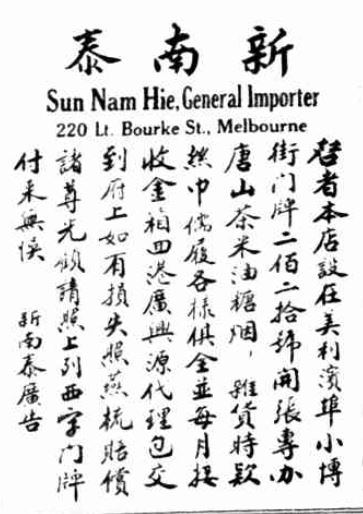 新南泰
Sun Nam Hie, General Importer
220 Lt. Bourke St., Melbourne
啓者本店設在美利濱埠小博
街門牌二佰二拾號開張專办
唐山茶米油糖烟，雜貨時款
絲巾儒履各樣俱全並每月接
收金箱回港廣興源代理包交
到府上如有損失照燕梳賠償
諸尊光顧請照上列西字門牌
付来無悮　新南泰廣告